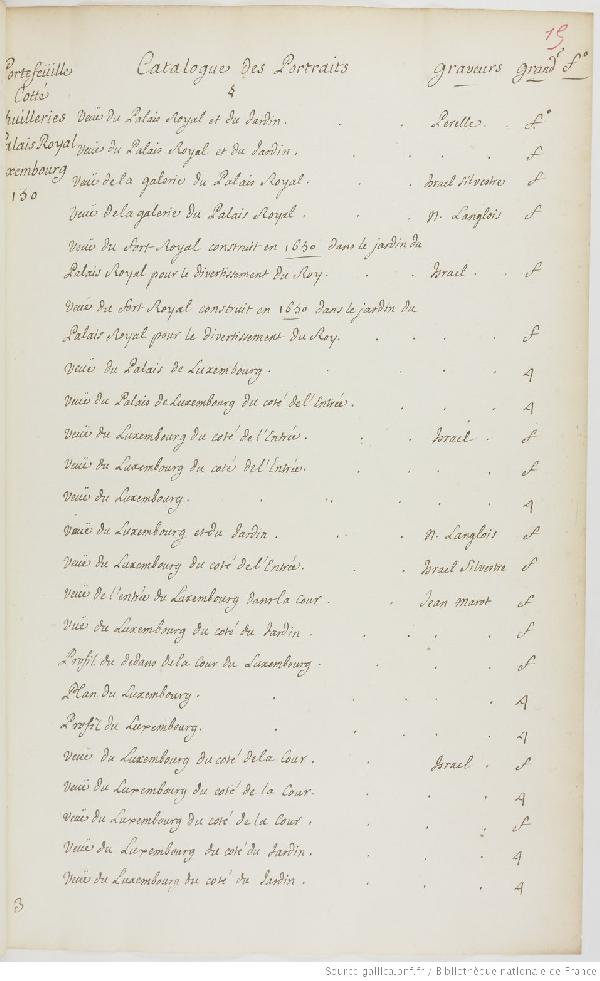 15
Portefeuille Cotté Thuilleries Palais Royal Luxembourg 150
Catalogue des Portraits graveurs grand.r f.o
&
Veüe du Palais Royal et du Jardin. Perelle. f.o
Veüe du Palais Royal et du Jardin. f
Veüe de la galerie du Palais Royal. Israel Silvestre f
Veüe de la galerie du Palais Royal. N. Langlois f
Veüe du Fort-Royal construit en 1650 dans le jardin du
Palais Royal pour le divertissement du Roy. Israel. f
Veüe du Fort Royal construit en 1650 dans le jardin du
Palais Royal pour le divertissement du Roy. f
Veüe du Palais de Luxembourg. 4
Veüe du Palais de Luxembourg du coté de l'Entrée. 4
Veüe du Luxembourg du coté de l'Entrée. Israël. f
Veüe du Luxembourg du coté de l'Entrée. f
Veüe du Luxembourg. 4
Veüe du Luxembourg et du Jardin. N. Langlois f
Veüe du Luxembourg du coté de l'Entrée. Israel Silvestre f
Veüe de l'entrée du Luxembourg dans la Cour. Jean Marot f
Veüe du Luxembourg du coté du Jardin. f
Profil du dedans de la Cour du Luxembourg. f
Plan du Luxembourg. 4
Profil du Luxembourg. 4
Veüe du Luxembourg du coté de la Cour. Israel. f
Veüe du Luxembourg du coté de la Cour. 4
Veüe du Luxembourg du coté de la Cour. f
Veüe du Luxembourg du coté du Jardin. 4
Veüe du Luxembourg du coté du Jardin. 4
3
Source gallica.bnf.fr / Bibliothèque nationale de France